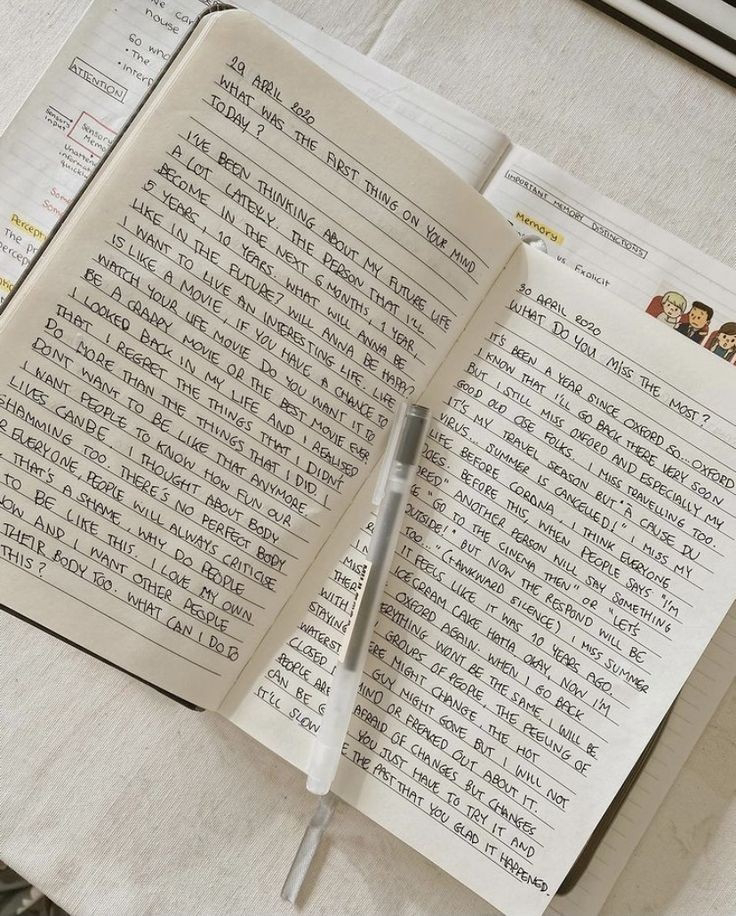 we can
house
So who
• The
• interf
ATTENTION
Sensory input
Sensory
Memo
Unatten
informati
quickly
Som
Som
Percept
The pr
percep
29 APRIL 2020
WHAT WAS THE FIRST THING ON YOUR MIND
TODAY?
I'VE BEEN THINKING ABOUT MY FUTURE LIFE
A LOT LATELY. THE PERSON THAT I'LL
BECOME IN THE NEXT 6 MONTHS, 1 YEAR,
5 YEARS, 10 YEARS. WHAT WILL ANNA BE
LIKE IN THE FUTURE? WILL ANNA BE HAPPY?
I WANT TO LIVE AN INTERESTING LIFE. LIFE
IS LIKE A MOVIE, IF YOU HAVE A CHANCE TO
WATCH YOUR LIFE MOVIE DO YOU WANT IT TO
BE A CRAPPY MOVIE OR THE BEST MOVIE EVER
I LOOKED BACK IN MY LIFE AND I REALISED
THAT I REGRET THE THINGS THAT I DIDNT
DO MORE THAN THE THINGS THAT I DID. I
DONT WANT TO BE LIKE THAT ANYMORE.
I WANT PEOPLE TO KNOW HOW FUN OUR
LIVES CAN BE. I THOUGHT ABOUT BODY
SHAMMING TOO. THERE'S NO PERFECT BODY
R EVERYONE, PEOPLE WILL ALWAYS CRITICISE
THAT'S A SHAME. WHY DO PEOPLE
TO BE LIKE THIS. I LOVE MY OWN
OW AND I WANT OTHER PEOPLE
THEIR BODY TOO. WHAT CAN I DO TO
THIS?
IMPORTANT MEMORY DISTINCTIONS
Memory
vs Explicit
30 APRIL 2020
WHAT DO YOU MISS THE MOST?
IT'S BEEN A YEAR SINCE OXFORD SO... OXFORD
I KNOW THAT I'LL GO BACK THERE VERY SOON
BUT I STILL MISS OXFORD AND ESPECIALLY MY
GOOD OLD OSE FOLKS. I MISS TRAVELLING TOO.
IT'S MY TRAVEL SEASON BUT "A CAUSE DU
VIRUS... SUMMER IS CANCELLED!" I MISS MY
LIFE BEFORE CORONA, I THINK EVERYONE
DOES. BEFORE THIS, WHEN PEOPLE SAYS "I'M
ORED" ANOTHER PERSON WILL SAY SOMETHING
E "GO TO THE CINEMA THEN" OR "LET'S
OUTSIDE!" BUT NOW THE RESPOND WILL BE
TOO..." (*AWKWARD SILENCE) I MISS SUMMER
IT FEELS LIKE IT WAS 10 YEARS AGO.
MISS ICECREAM CAKE HAHA OKAY, NOW I'M
THER OXFORD AGAIN. WHEN I GO BACK
WITH ERYTHING WONT BE THE SAME. I WILL BE
STAYING GROUPS OF PEOPLE, THE PEELING OF
WATERST ERE MIGHT CHANGE. THE HOT
CLOSED GUY MIGHT GONE BUT I WILL NOT
PEOPLE ARE MIND OR FREAKED OUT ABOUT IT.
CAN BE AFRAID OF CHANGES BUT CHANGES
IT'LL SLOW YOU JUST HAVE TO TRY IT AND
E THE PAST THAT YOU GLAD IT HAPPENED.